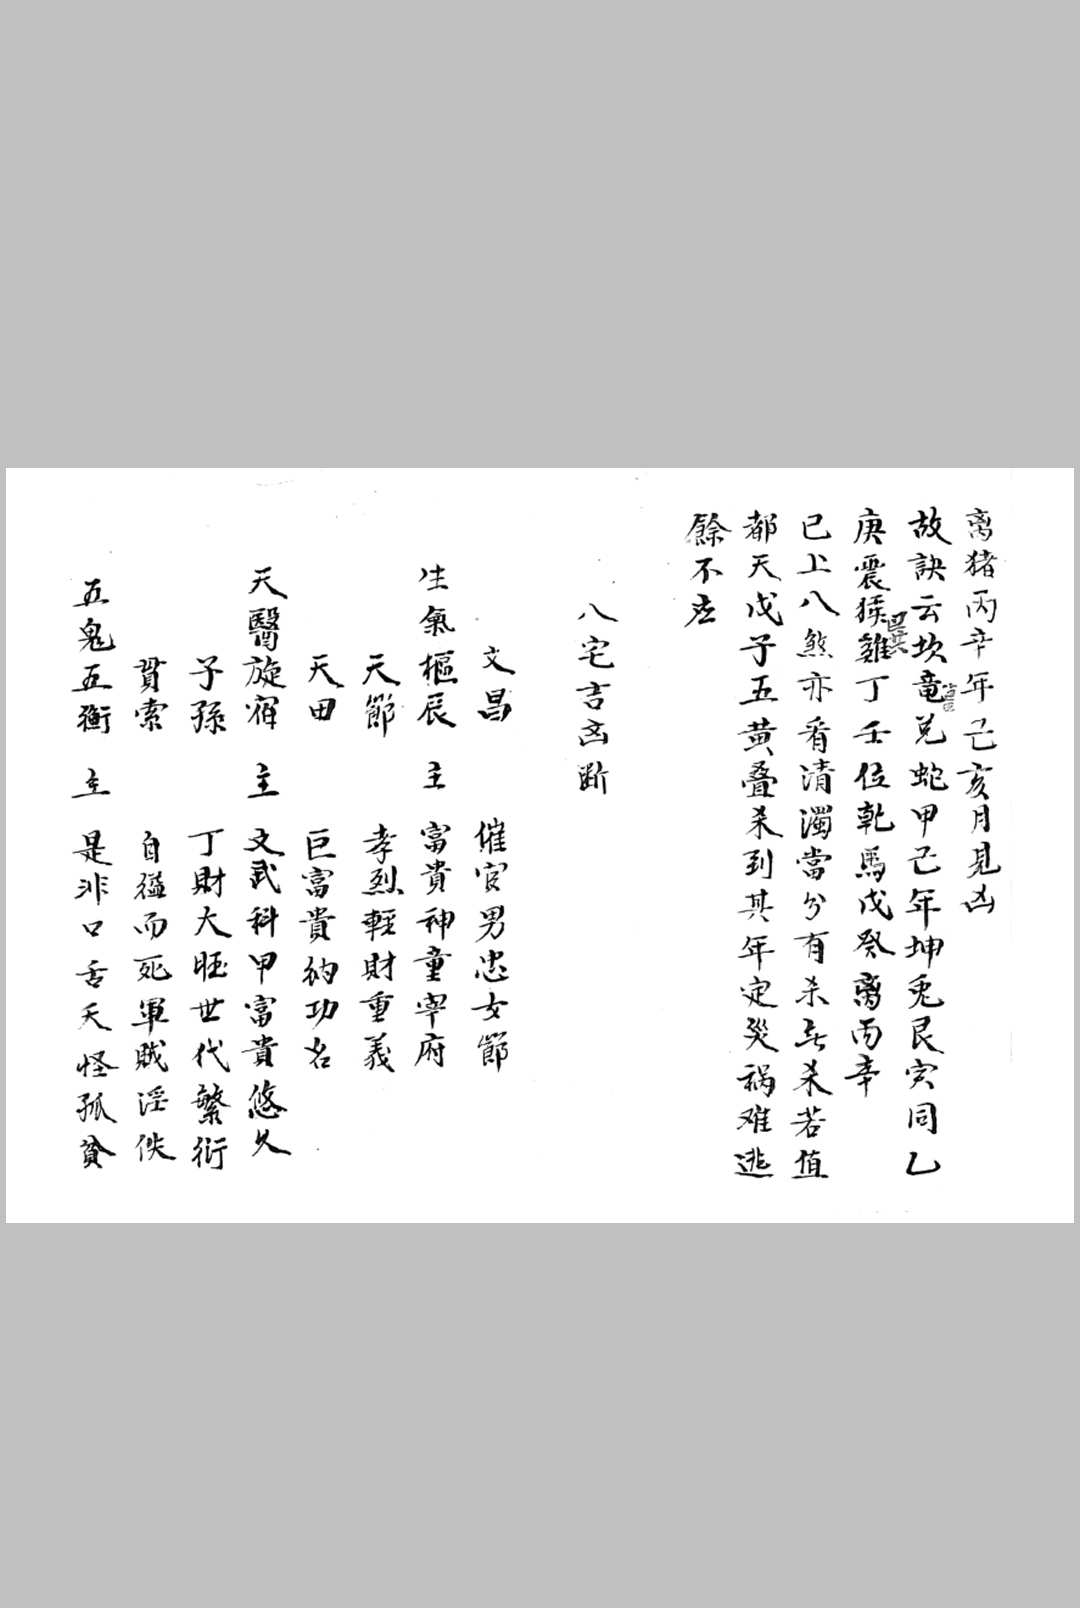 离猪丙辛年己亥月見凶
故訣云坎竜兑蛇甲己年坤兎艮寅同乙
庚震猴巽雞丁壬位乾馬戊癸离丙辛
已上八煞亦看清濁當分有杀無杀若值
都天戊子五黄叠杀到其年定災祸难逃
餘不忌
八宅吉凶断
文昌 催官男忠女節
生氣樞辰 主 富貴神童宰府
天節 孝烈輕財重義
天田 巨富貴納功名
天醫旋宿 主 文武科甲富貴悠久
子孫 丁財大旺世代繁衍
貫索 自縊而死軍賊淫佚
五鬼五衡 主 是非口舌夭怪孤貧